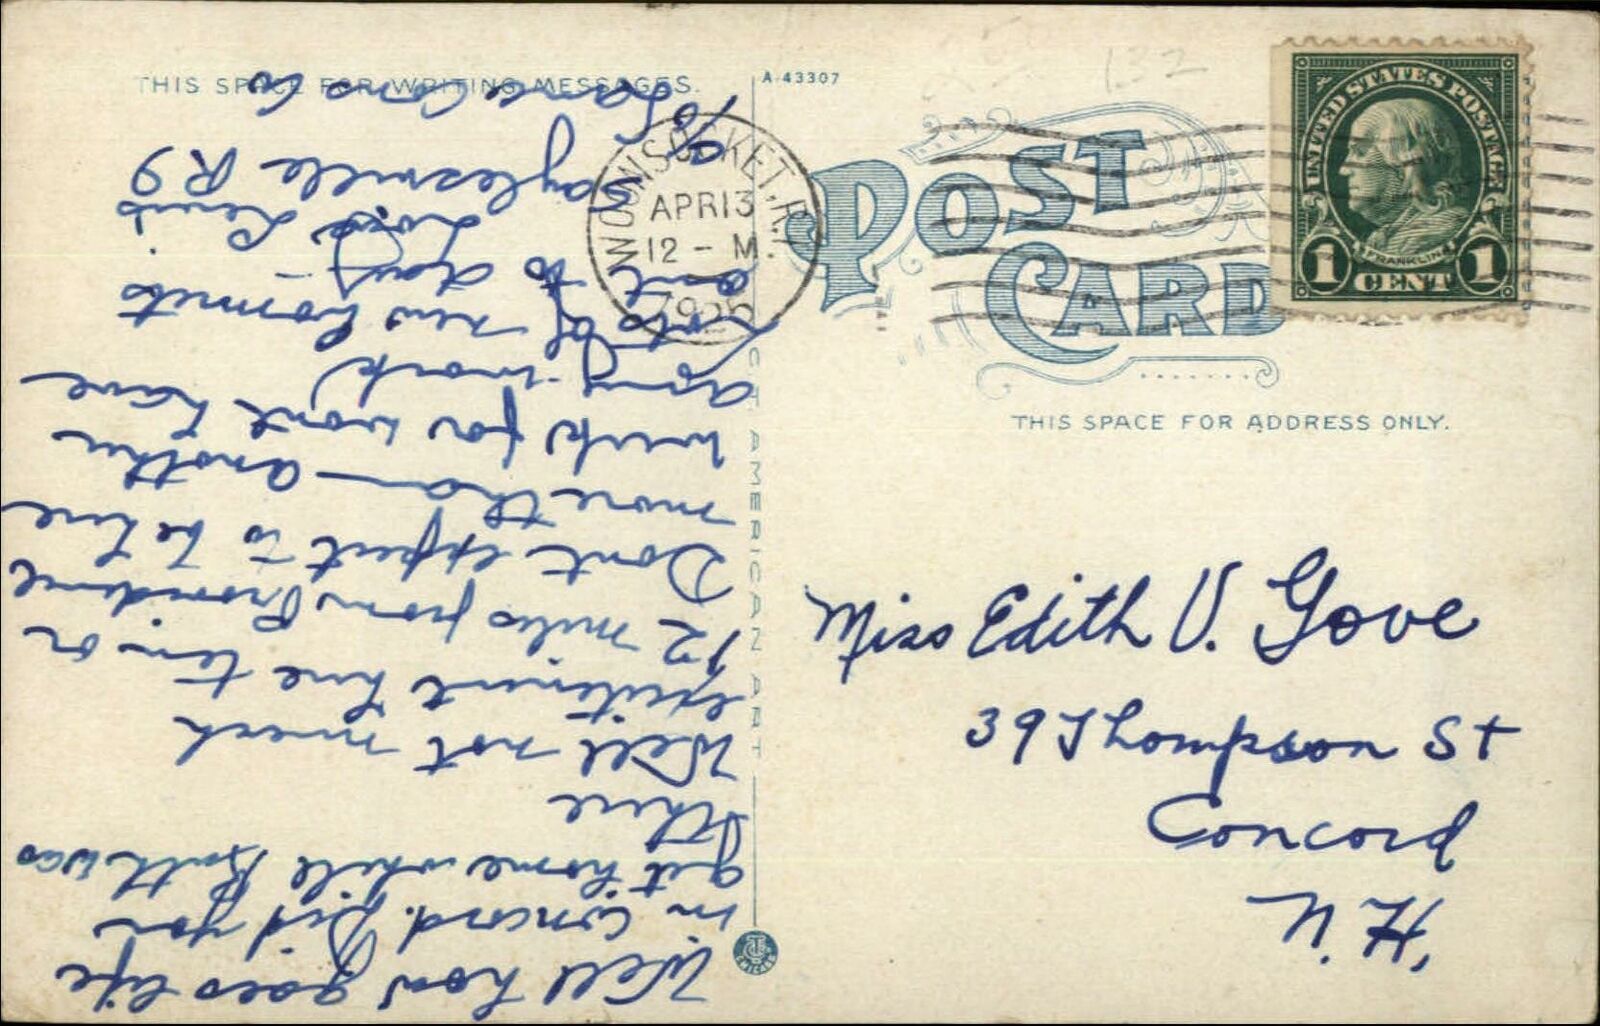 THIS SPACE FOR WRITING MESSAGES.
A-43307
132
WOONSOCKET, R.I.
APR 13
12 - M
1925
POST
CARD
UNITED STATES POSTAGE
FRANKLIN
1 CENT 1
THIS SPACE FOR ADDRESS ONLY.
Miss Edith V. Gove
39 Thompson St
Concord
N.H.
C.T. AMERICAN ART
Well how goes life
in Concord. Did you
get home while Ruth was
there
Well not much
excitement here ten or
12 miles from Providence
Dont expect to be here
more than another
week for wont have
any work
lots of new hermits
out to day -
Love Lewis
Saylesville R I
c/o